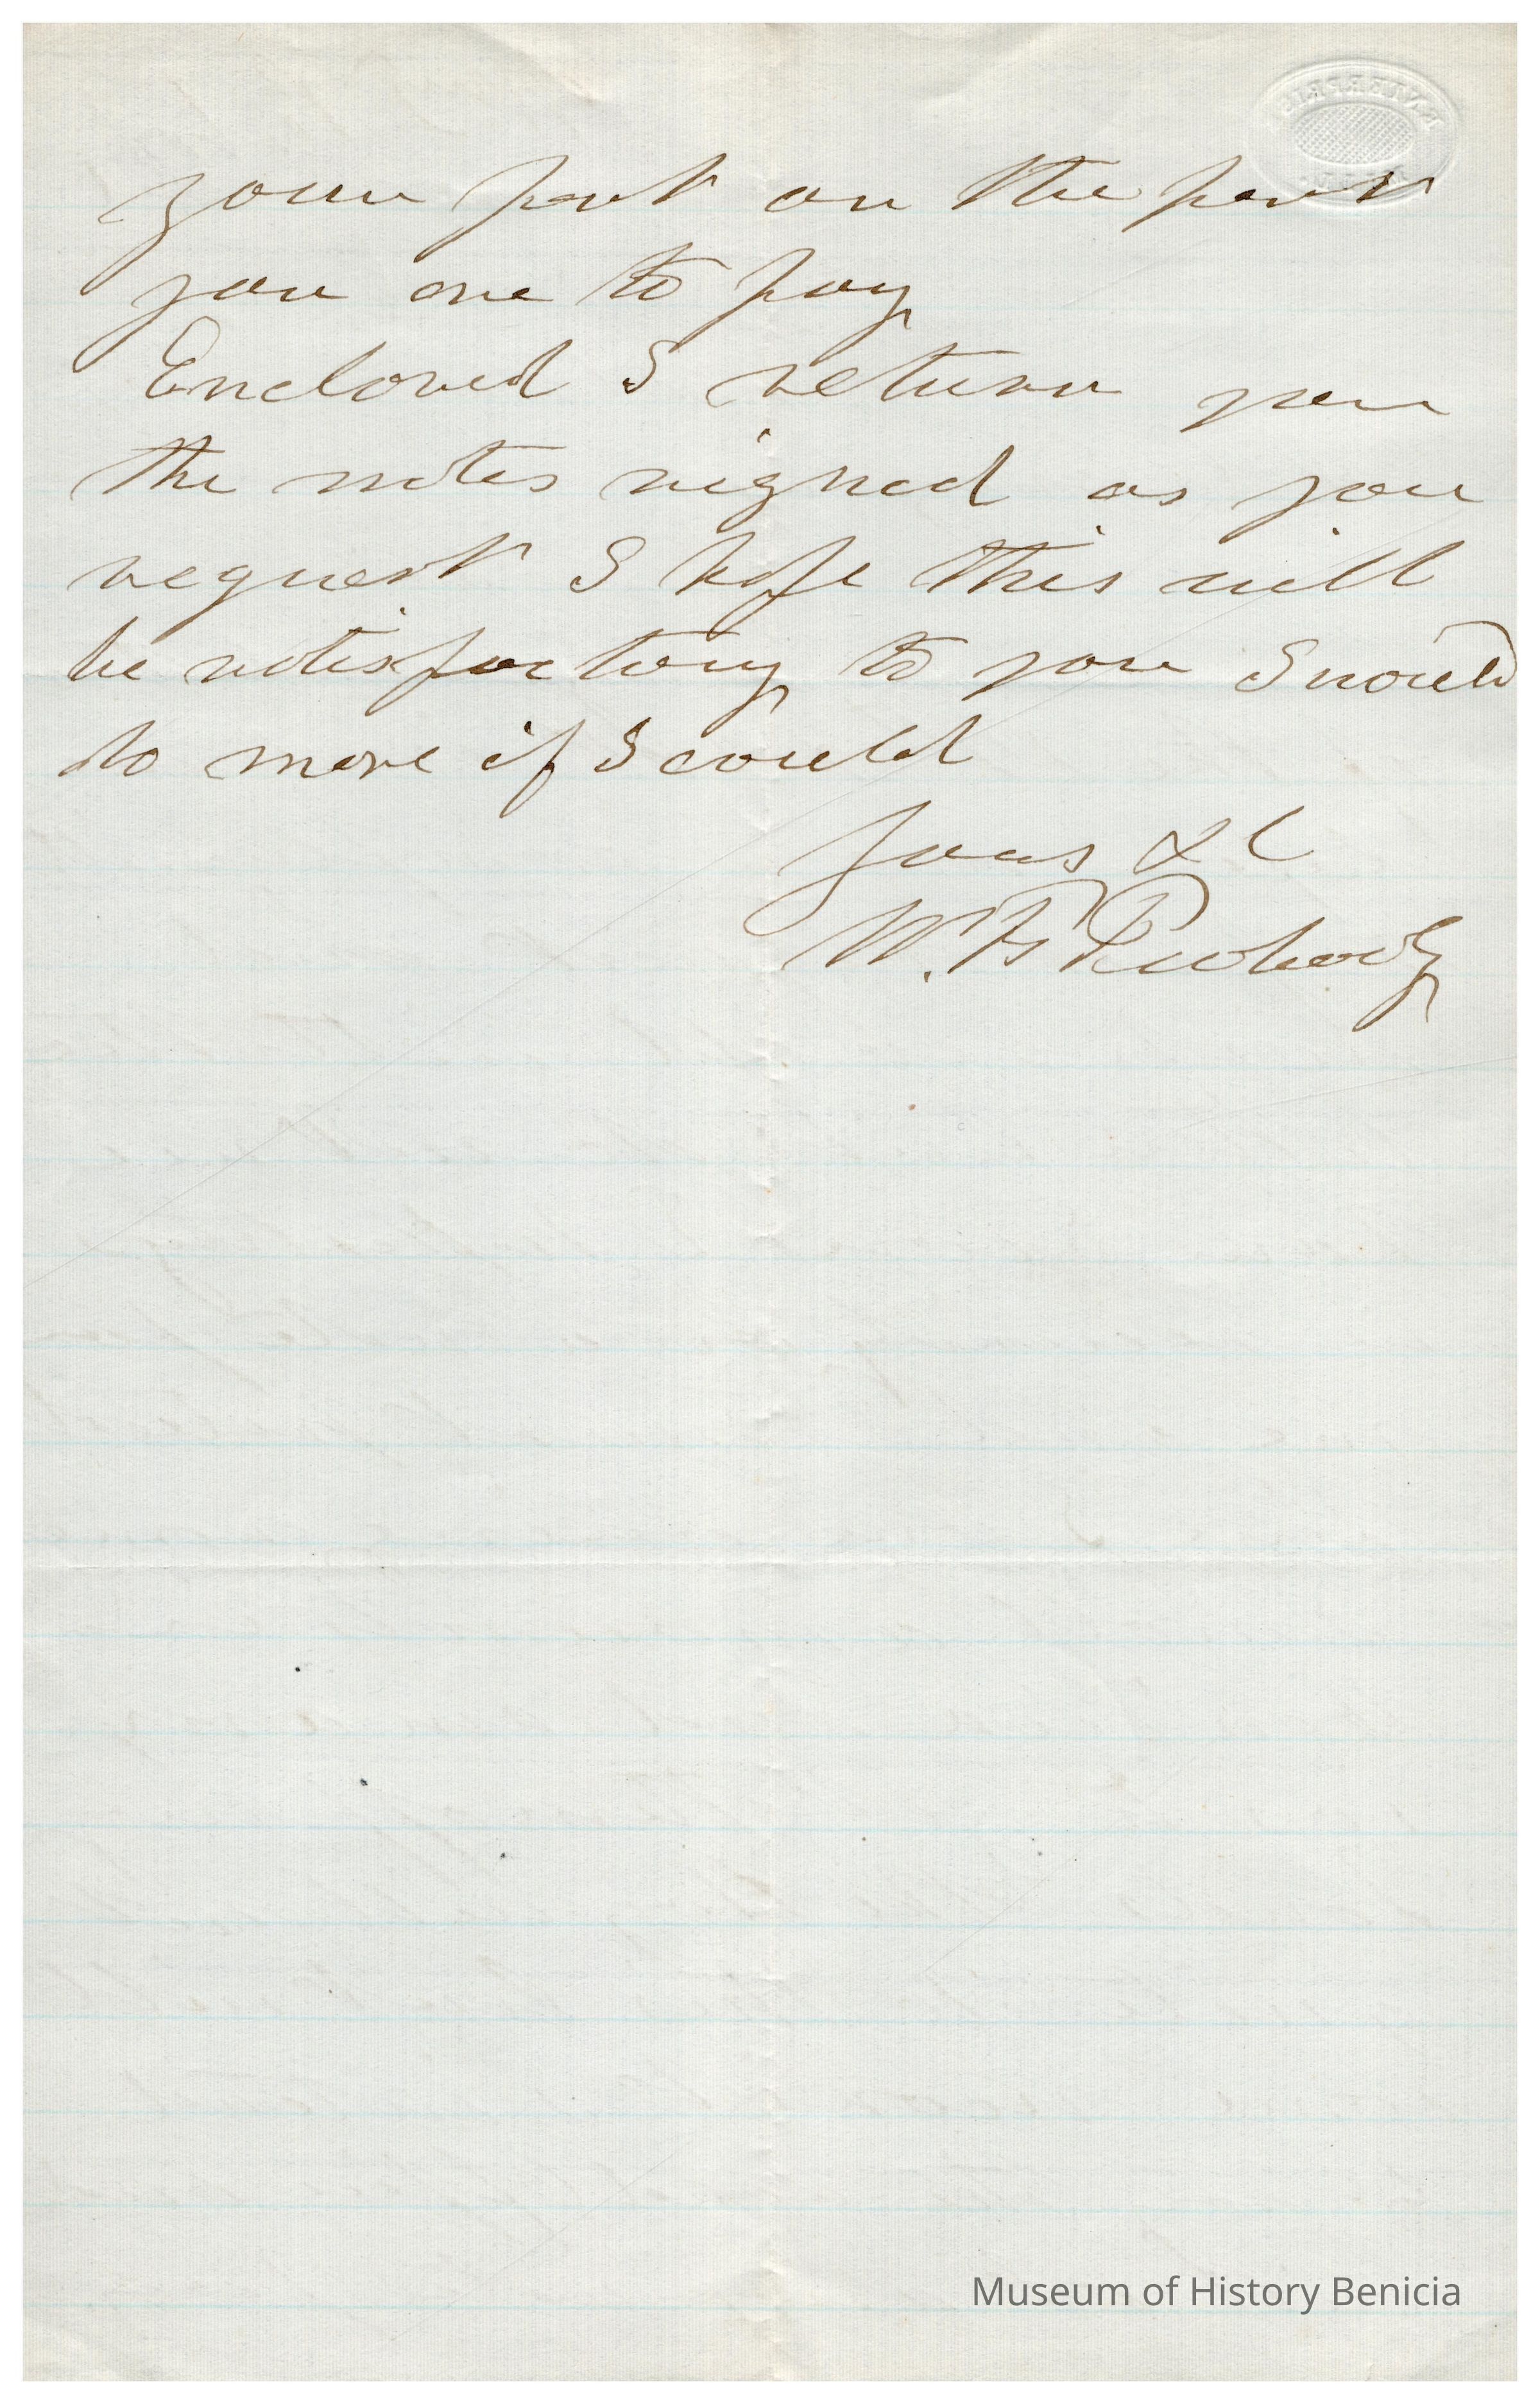 your part on the part
you are to pay
Enclosed I return you
the notes signed as you
request I hope this will
be satisfactory to you I would
do more if I could
Yours &c
W. F. Peabody
ENTERPRIS
Museum of History Benicia